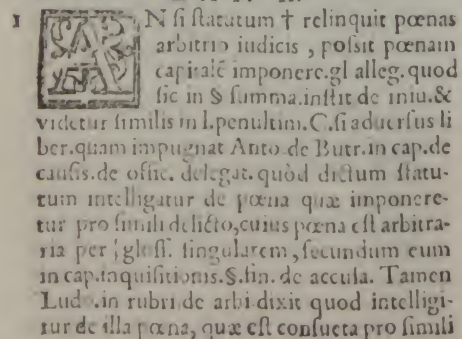 1 AN si statutum † relinquit pœnas
arbitrio iudicis, possit pœnam
capitalẽ imponere.gl alleg.quod
sic in § summa.instit de iniu.&
videtur similis in l.penultim.C.si aduersus li
ber.quam impugnat Anto.de Butr.in cap.de
causis.de offic. delegat. quòd dictum statu-
tum intelligatur de pœna quæ impone re-
tur pro simili delicto,cuius pœna est arbitra-
ria per gloss. singularem, secundum eum
in cap.inquisitionis.§.fin. de accusa. Tamen
Lud.in rubri de arbi dixit quod intelligi-
tur de illa pœna, quæ est consueta pro simili